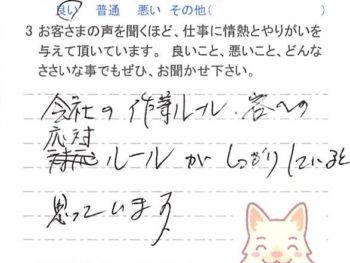 良い 普通 悪い その他( )
3 お客さまの声を聞くほど、仕事に情熱とやりがいを
与えて頂いています。 良いこと、悪いこと、どんな
ささいな事でもぜひ、お聞かせ下さい。
会社の作業ルール、客への
応対
ルールがしっかりしていると
思っています。